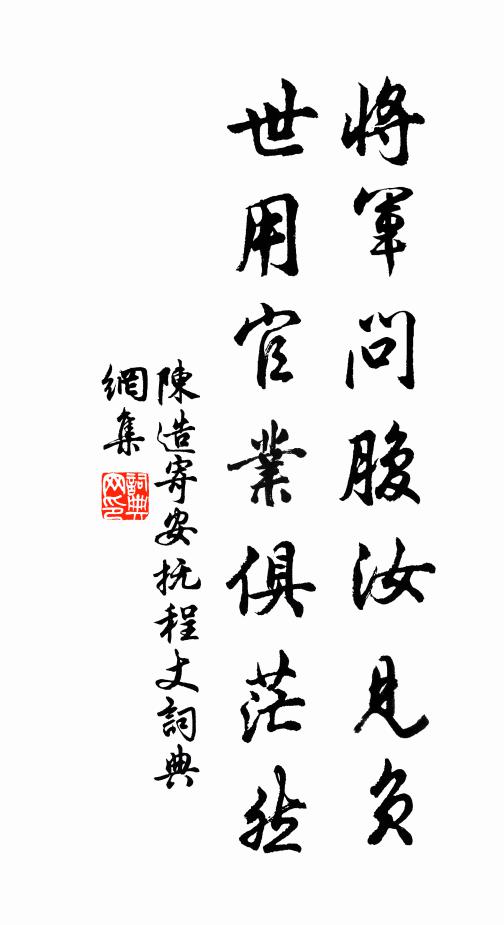 將軍問腹汝見負
世用官業俱茫然
陳造寄安抚程丈詞典
網集
詞典
网印